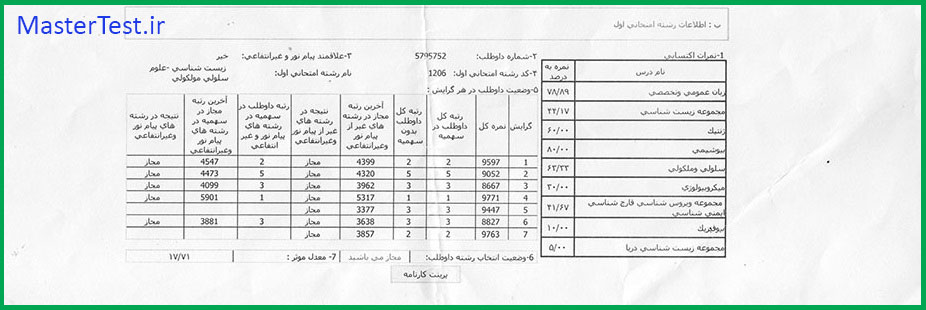 MasterTest.ir
ب : اطلاعات رشته امتحانی اول
1-نمرات اکتسابی
۲-شماره داوطلب: 5795752
۳-علاقمند پیام نور و غیرانتفاعی: خیر
۴-کد رشته امتحانی اول: 1206
نام رشته امتحانی اول: زیست شناسی -علوم سلولی مولکولی
۵-وضعیت داوطلب در هر گرایش :
نام درس | نمره به درصد
زبان عمومی وتخصصی | ۷۸/۸۹
مجموعه زیست شناسی | ۴۴/۱۷
ژنتیك | ۶۰/۰۰
بیوشیمی | ۸۰/۰۰
سلولی وملکولی | ۶۳/۳۳
میکروبیولوژی | ۳۰/۰۰
مجموعه ویروس شناسی قارچ شناسی ایمنی شناسی | ۴۱/۶۷
بیوفیزیك | ۱۰/۰۰
مجموعه زیست شناسی دریا | ۵/۰۰
گرایش | نمره کل | رتبه کل داوطلب در سهمیه | رتبه کل داوطلب بدون سهمیه | آخرین رتبه مجاز در رشته های غیر از پیام نور وغیرانتفاعی | نتیجه در رشته های غیر از پیام نور وغیرانتفاعی | رتبه داوطلب در سهمیه در رشته های پیام نور و غیر انتفاعی | آخرین رتبه مجاز در سهمیه در رشته های پیام نور وغیرانتفاعی | نتیجه در رشته های پیام نور وغیرانتفاعی
1 | 9597 | 2 | 2 | 4399 | مجاز | 2 | 4547 | مجاز
2 | 9052 | 5 | 5 | 4320 | مجاز | 5 | 4473 | مجاز
3 | 8667 | 3 | 3 | 3962 | مجاز | 3 | 4099 | مجاز
4 | 9771 | 1 | 1 | 5317 | مجاز | 1 | 5901 | مجاز
5 | 9447 | 3 | 3 | 3377 | مجاز
6 | 8827 | 3 | 3 | 3638 | مجاز | 3 | 3881 | مجاز
7 | 9763 | 2 | 2 | 3857 | مجاز
6-وضعیت انتخاب رشته داوطلب: مجاز می باشید
7- معدل موثر : ۱۷/۷۱
پرینت کارنامه